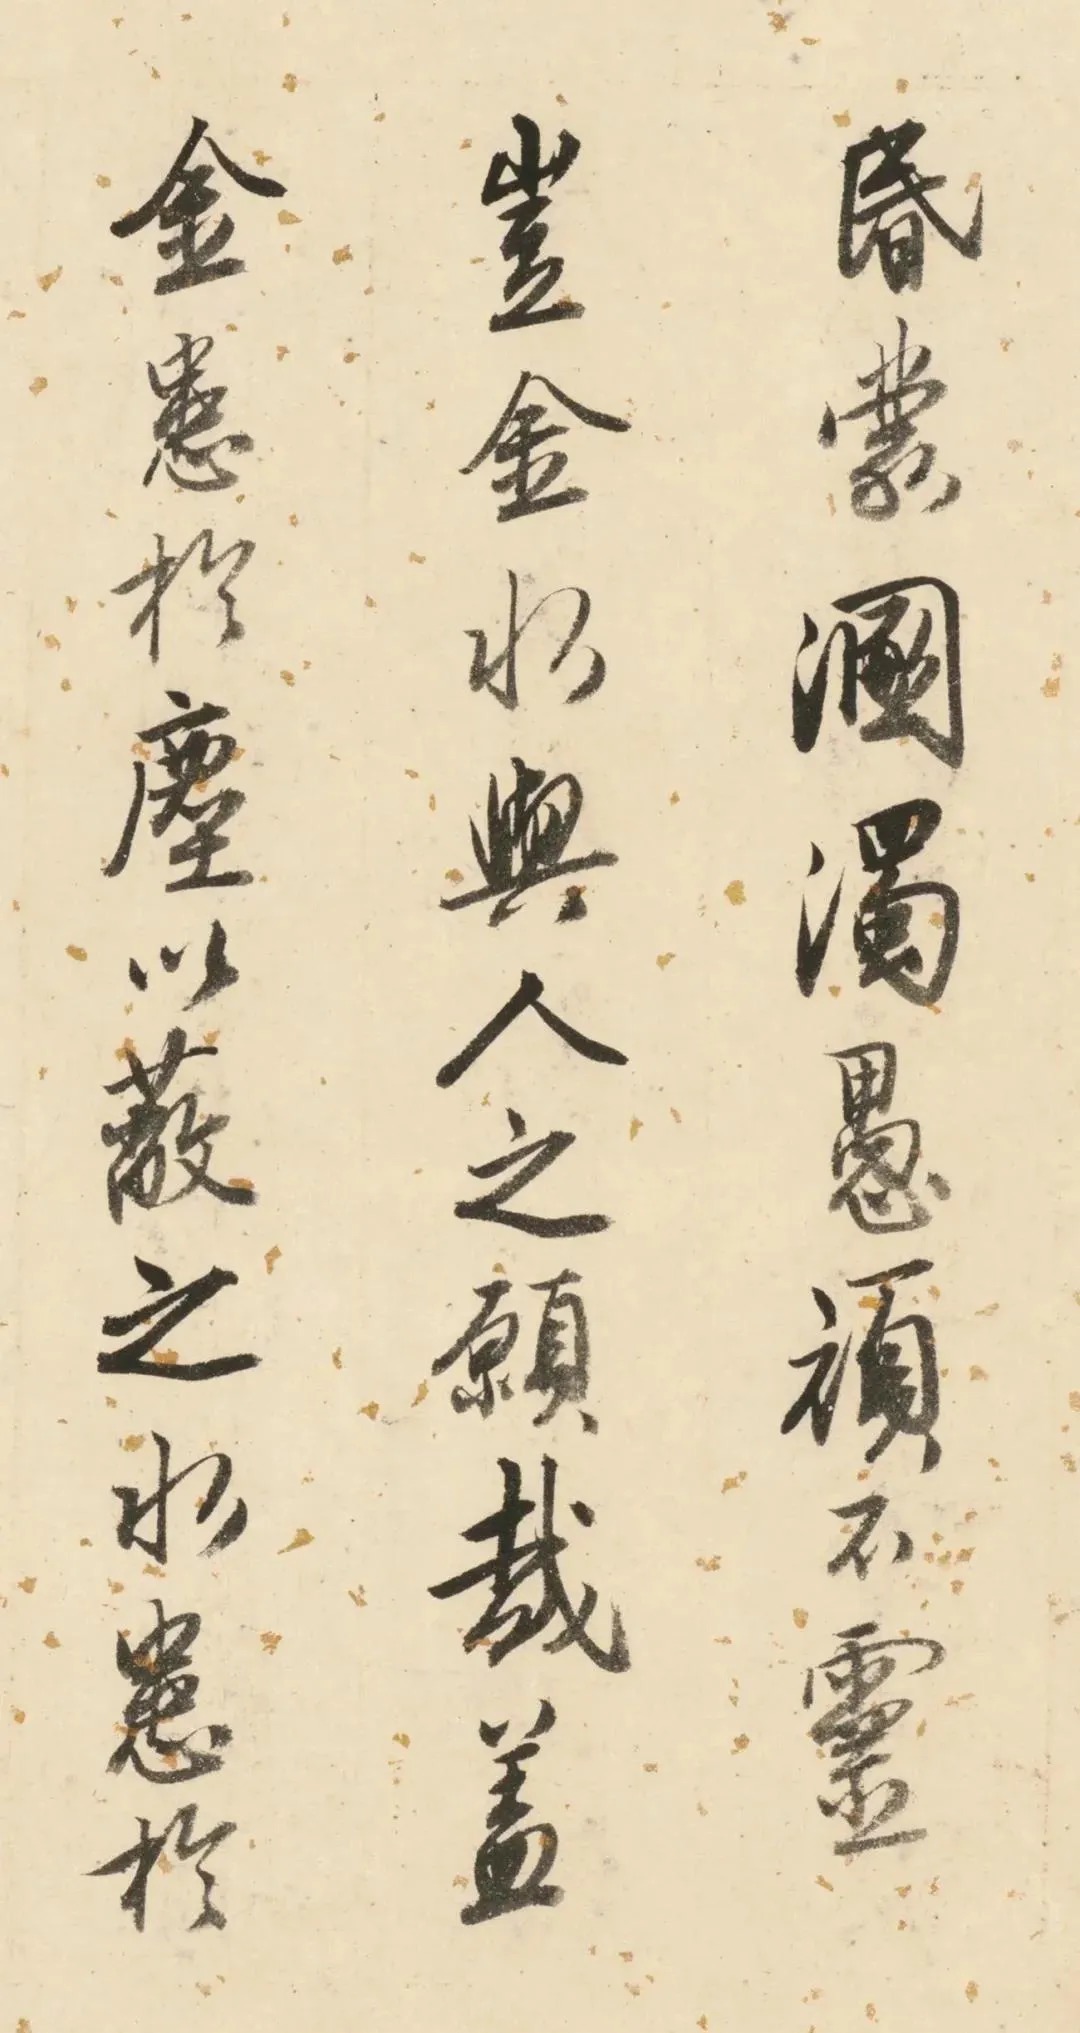 昬蒙溷濁愚頑不靈
豈金水與人之願哉蓋
金患於塵以蔽之水患於